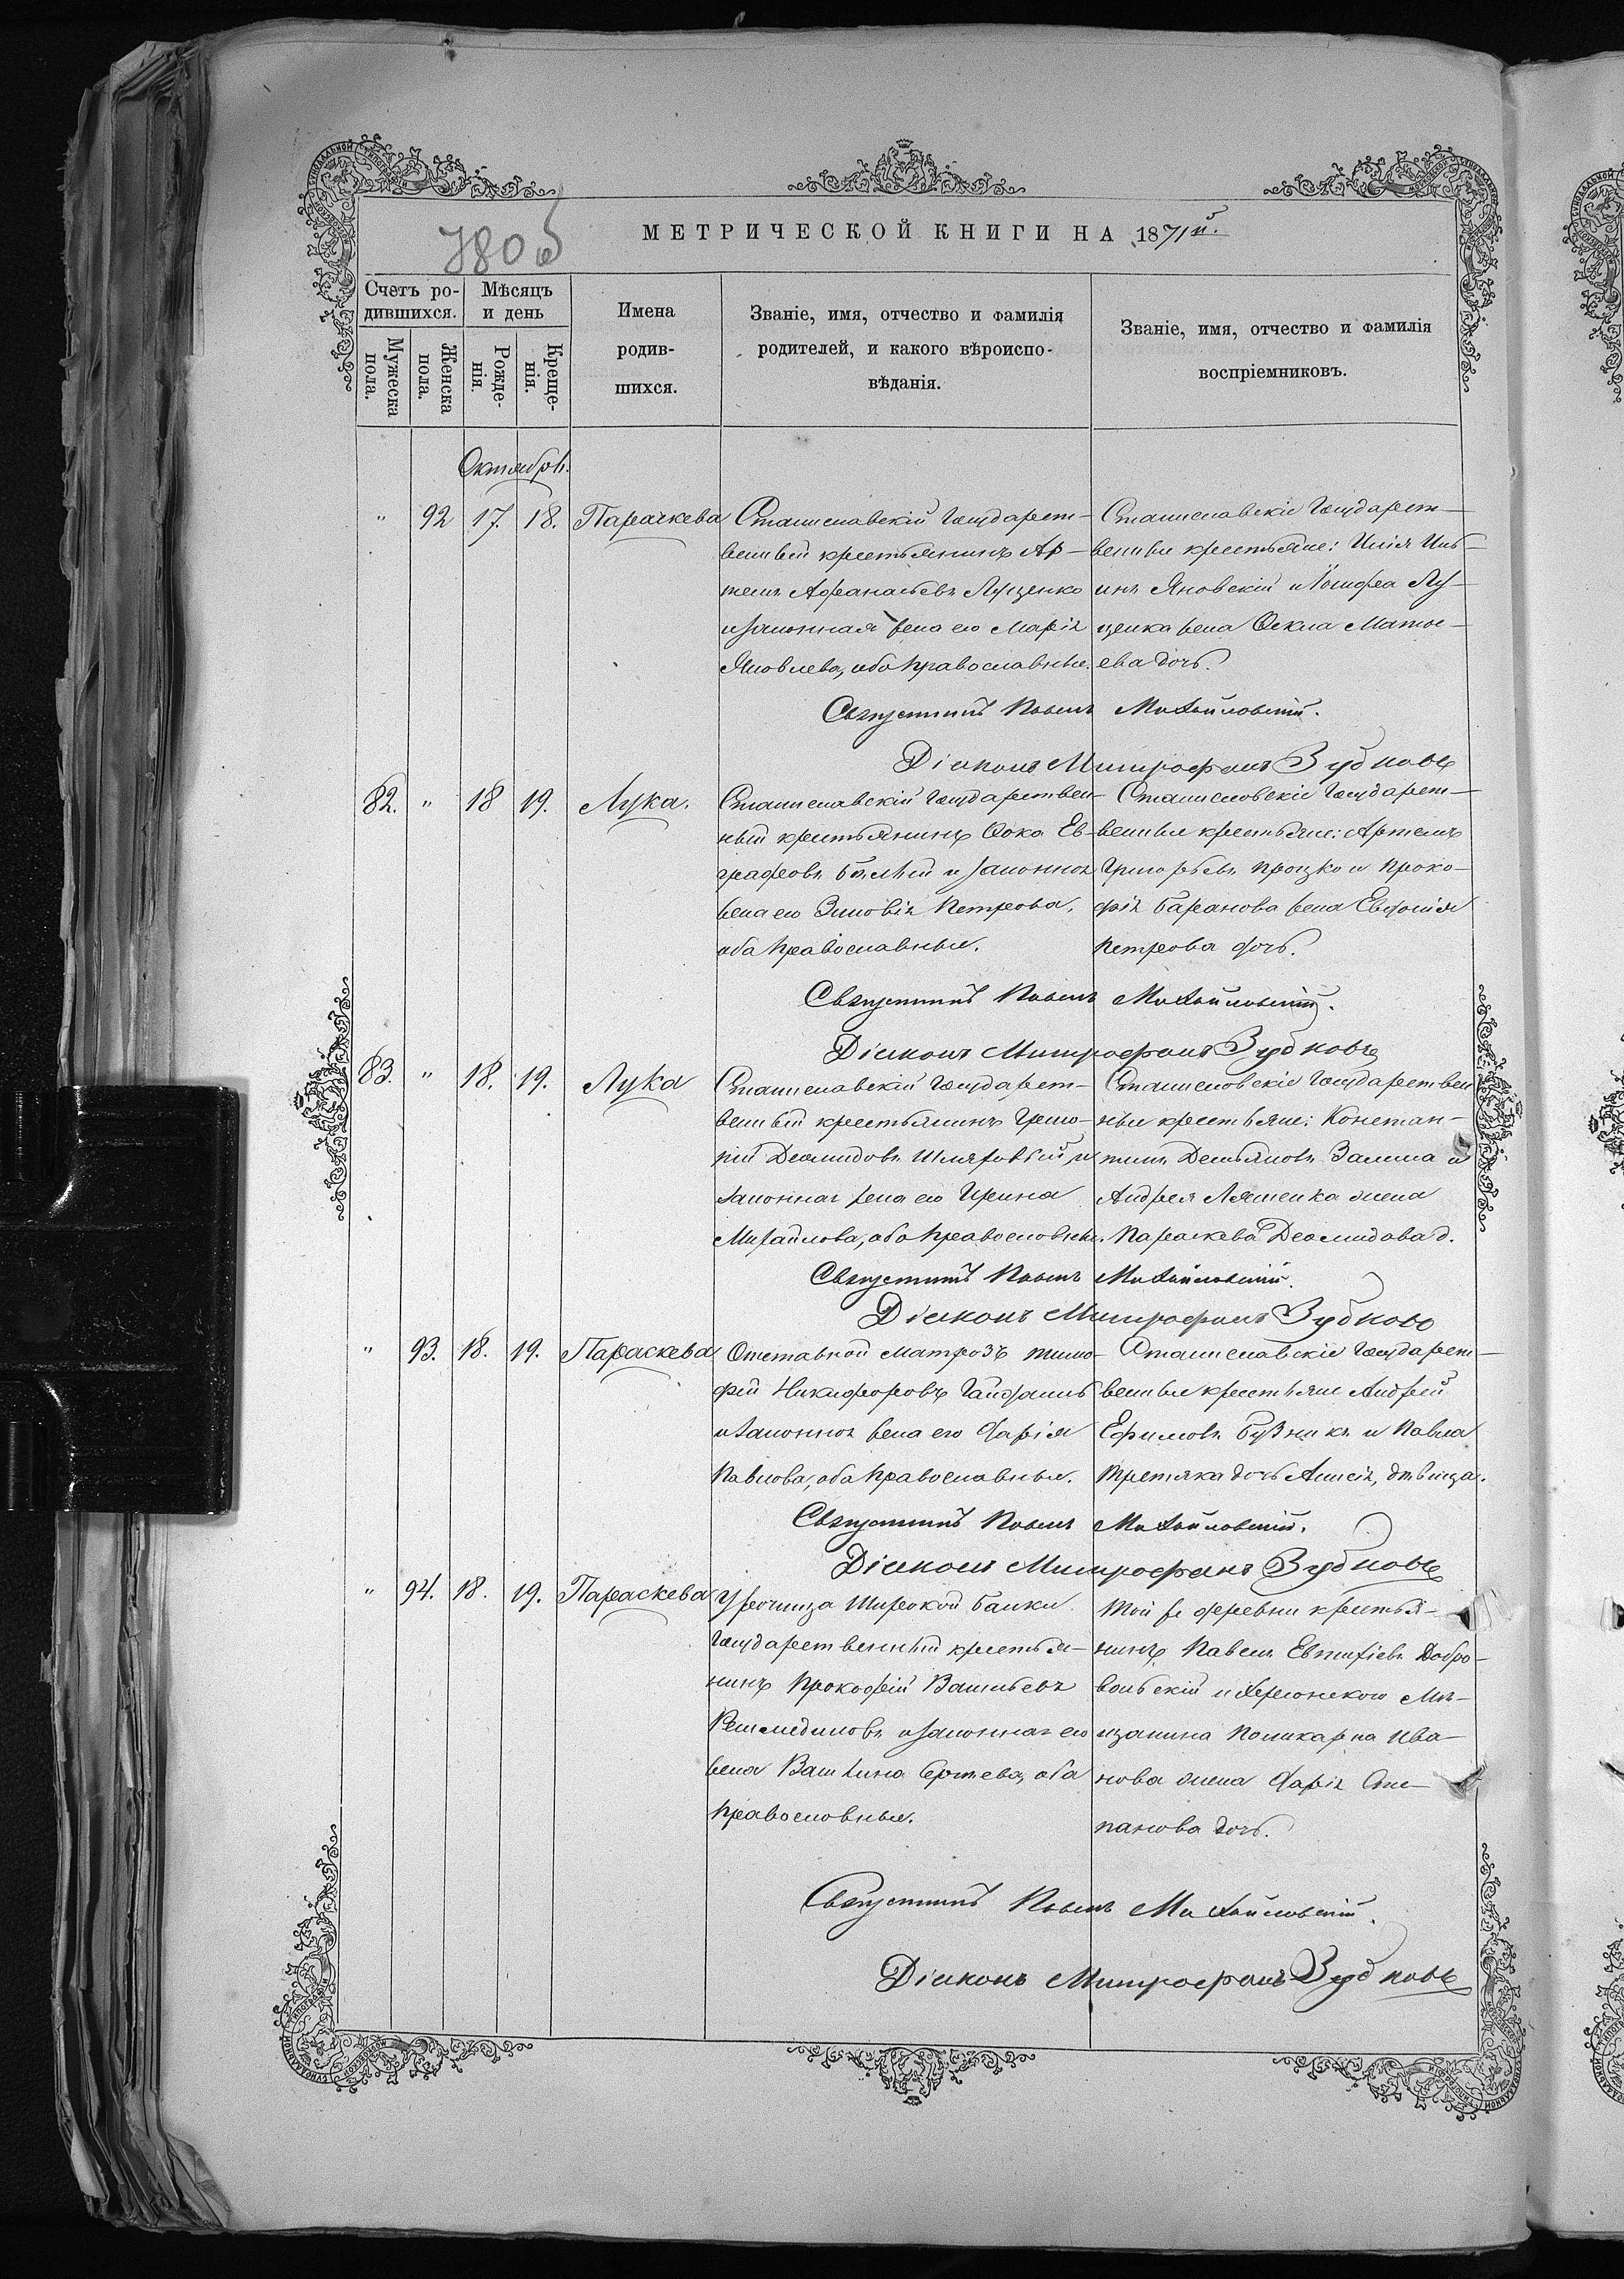 780об
МЕТРИЧЕСКОЙ КНИГИ НА 1871й.
Счетъ ро-
дившихся.
Мѣсяцъ
и день
Мужеска
пола.
Женска
пола.
Рожде-
нія.
Креще-
нія.
Имена
родив-
шихся.
Званіе, имя, отчество и фамилія
родителей, и какого вѣроиспо-
вѣданія.
Званіе, имя, отчество и фамилія
воспріемниковъ.
Октябрь.
" 92 17. 18. Параскева
Станиславскій государст-
венный крестьянинъ Ар-
темъ Афанасьевъ Луценко
и законная жена его Марія
Яковлева, оба православные.
Станиславскіе государст-
венные крестьяне: Илія Иль-
инъ Яновскій и Іосифа Лу-
ценка жена Ѳекла Матѳе-
ева дочь.
Священникъ Павелъ Михайловскій.
Діаконъ Митрофанъ Зубковъ
82. " 18 19. Лука.
Станиславскій государствен-
ный крестьянинъ Ѳока Ев-
графовъ Бѣлый и законная
жена его Зиновія Петрова,
оба православные.
Станиславскіе государст-
венные крестьяне: Артемъ
Григорьевъ Процко и Проко-
фія Баранова жена Евфимія
Петрова дочь.
Священникъ Павелъ Михайловскій.
Діаконъ Митрофанъ Зубковъ
83. " 18. 19. Лука
Станиславскій государст-
венный крестьянинъ Григо-
рій Деомидовъ и
законная жена его Ирина
Михайлова, оба православные.
Станиславскіе государствен-
ные крестьяне: Констан-
тинъ Демьяновъ и
Андрея Ляшенка жена
Параскева Деомидова д.
Священникъ Павелъ Михайловскій.
Діаконъ Митрофанъ Зубковъ
" 93. 18. 19. Параскева
Отставной матрозъ Тимо-
фій Никифоровъ
и законная жена его Дарія
Павлова, оба православные.
Станиславскіе государст-
венные крестьяне Андрей
Ефимовъ Бузникъ и Павла
Третяка дочь Анисія, дѣвица.
Священникъ Павелъ Михайловскій.
Діаконъ Митрофанъ Зубковъ
" 94. 18. 19. Параскева
Урочища Широкой Балки
государственный крестья-
нинъ Прокофій Васильевъ
и законная его
жена Василина Сергѣева, оба
православные.
Той же деревни крестья-
нинъ Павелъ Евтихіевъ Добро-
вольскій и Херсонскаго мѣ-
щанина Поликарпа Ива-
нова жена Дарія Сте-
панова дочь.
Священникъ Павелъ Михайловскій.
Діаконъ Митрофанъ Зубковъ